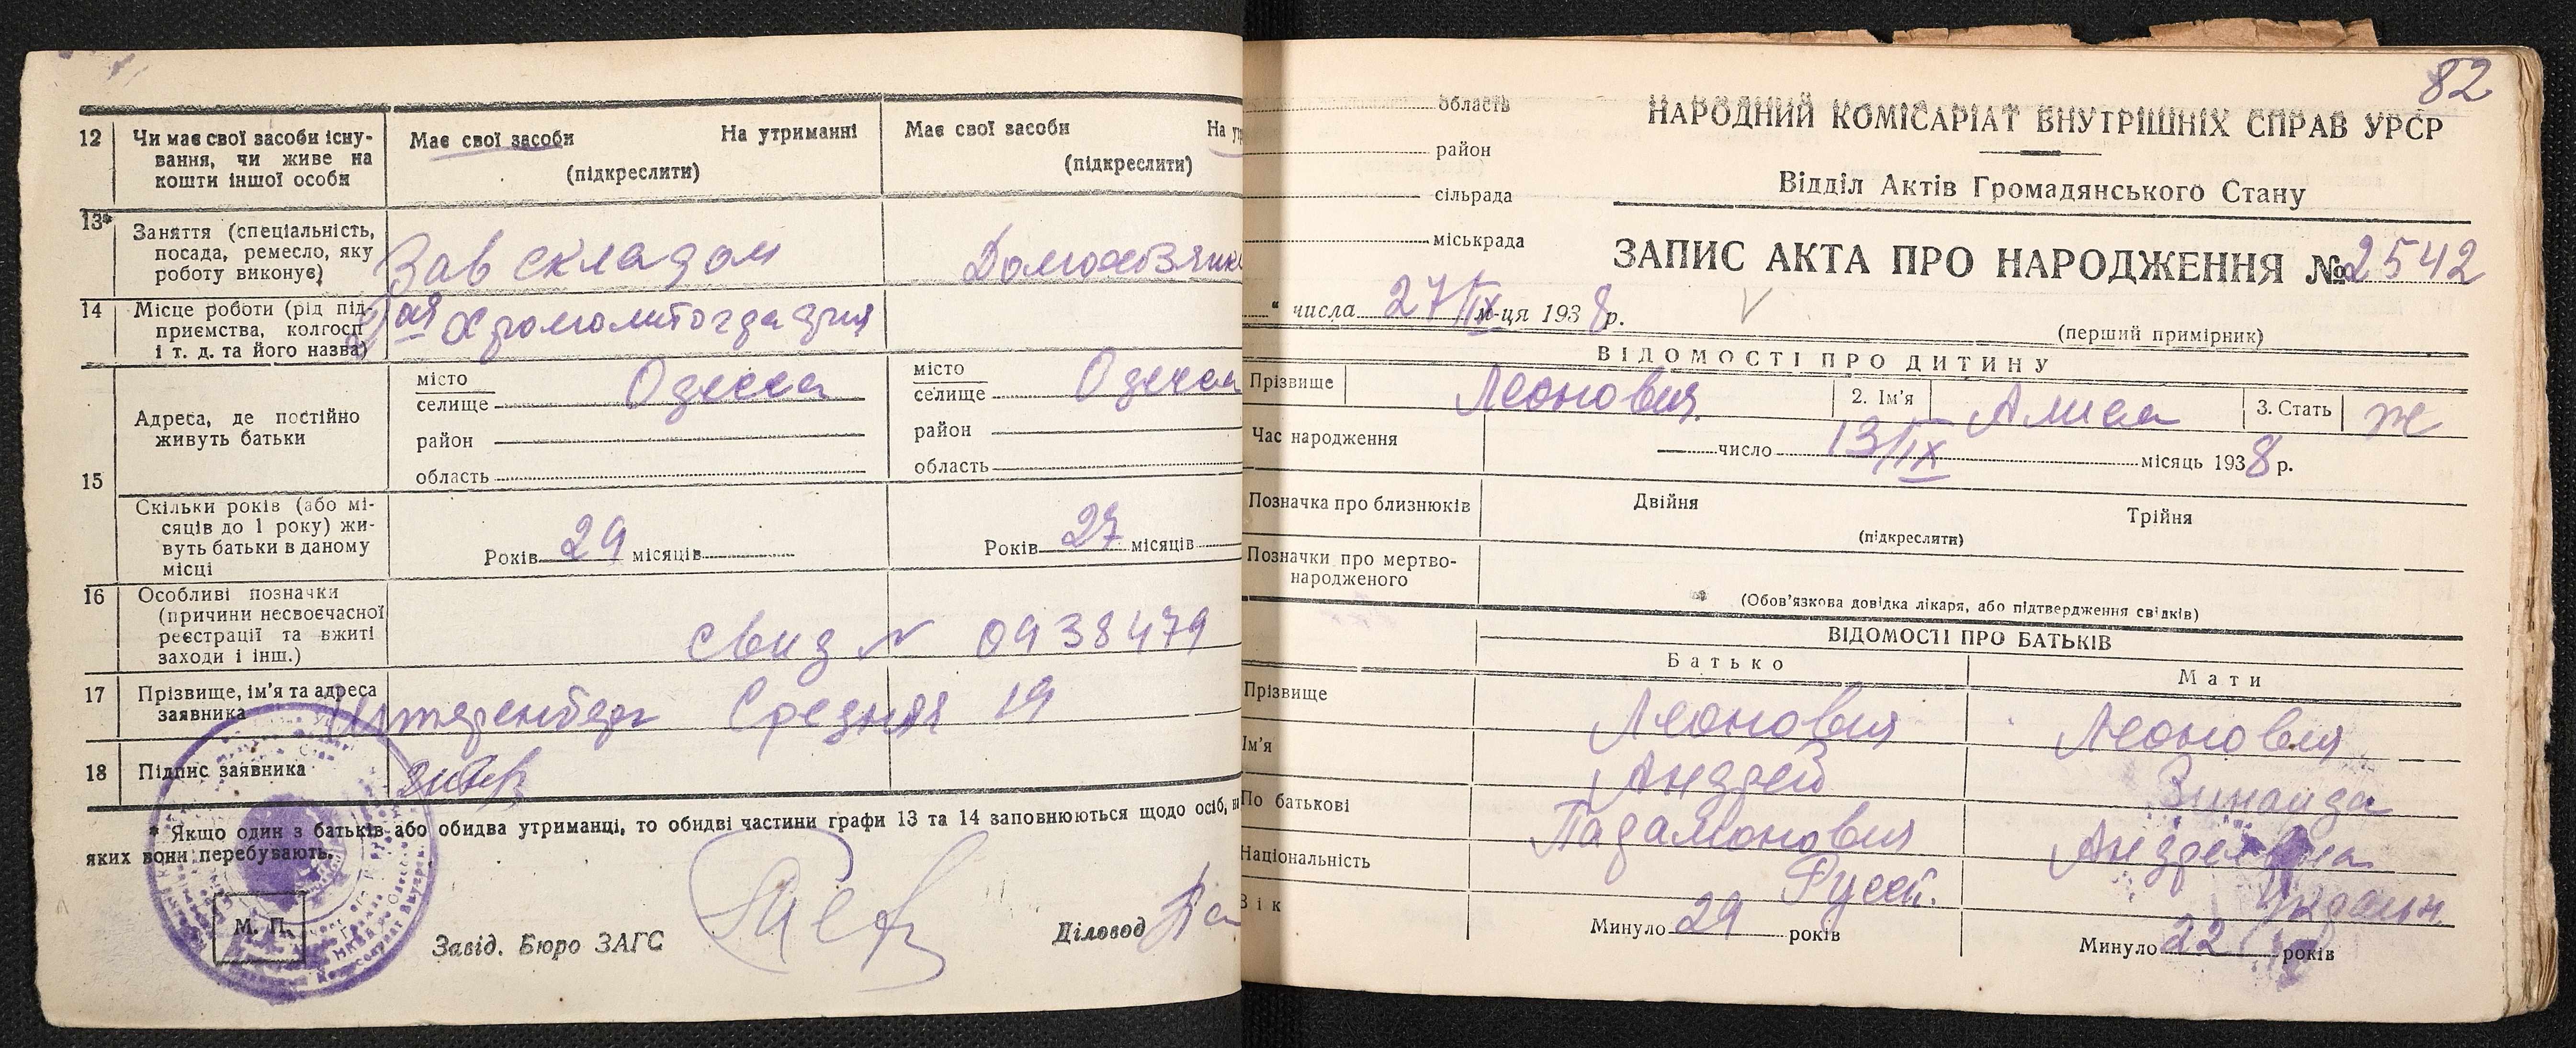 12
Чи має свої засоби існу-
вання, чи живе на
кошти іншої особи
Має свої засоби На утриманні
(підкреслити)
Має свої засоби На ут
(підкреслити)
13*
Заняття (спеціальність,
посада, ремесло, яку
роботу виконує)
Зав складом
Домохозяйк
14
Місце роботи (рід під-
приємства, колгосп
і т. д. та його назва)
ая Хромолитография
15
Адреса, де постійно
живуть батьки
місто
селище Одесса
район
область
місто
селище Одесса
район
область
Скільки років (або мі-
сяців до 1 року) жи-
вуть батьки в даному
місці
Років 29 місяців
Років 27 місяців
16
Особливі позначки
(причини несвоєчасної
реєстрації та вжиті
заходи і інш.)
Свид № 0938479
17
Прізвище, ім'я та адреса
заявника
Штеренберг Средняя 19
18
Підпис заявника
* Якщо один з батьків або обидва утриманці, то обидві частини графи 13 та 14 заповнюються щодо осіб, на
яких вони перебувають.
М. П.
Завід. Бюро ЗАГС
Діловод
82
область
район
сільрада
міськрада
НАРОДНИЙ КОМІСАРІАТ ВНУТРІШНІХ СПРАВ УРСР
Відділ Актів Громадянського Стану
ЗАПИС АКТА ПРО НАРОДЖЕННЯ № 2542
" числа 27/IX м-ця 1938 р.
(перший примірник)
ВІДОМОСТІ ПРО ДИТИНУ
Прізвище Леонович 2. Ім'я Алиса 3. Стать ж
Час народження число 13/IX місяць 1938 р.
Позначка про близнюків Двійня Трійня
(підкреслити)
Позначки про мертво-
народженого
(Обов'язкова довідка лікаря, або підтвердження свідків)
ВІДОМОСТІ ПРО БАТЬКІВ
Батько Мати
Прізвище Леонович Леонович
Ім'я Андрей Зинаида
По батькові Парамонович Андреевна
Національність Русск. Украин.
Вік Минуло 29 років Минуло 22 років